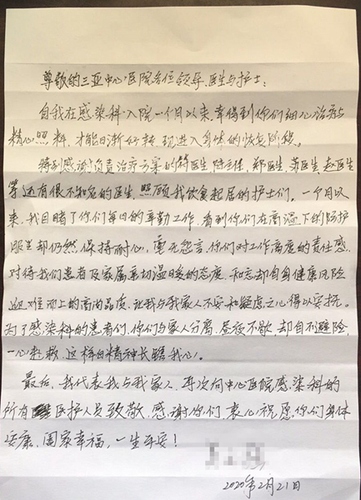 尊敬的三亚中心医院各位领导、医生与护士：
自我在感染科入院一个月以来，幸得到你们细心治疗与
精心照料，才能日渐好转，现进入身体的恢复阶段。
特别感谢负责治疗方案的 医生 陆主任，郑医生，苏医生，赵医生
等，还有很多不知名的医生，照顾我饮食起居的护士们。一个月以
来，我目睹了你们每日的辛勤工作，看到你们在高温下的防护
服里却仍然保持耐心，毫无怨言，你们对工作高度的责任感，
对待我们患者及家属亲切温暖的态度，和忘却自身健康风险
迎难而上的高尚品质，让我与我家人不安和疑虑之心得以安抚。
为了感染科的患者们，你们与家人分离，昼夜不歇，却自不避险，
一心赴救，这样的精神长驻我心。
最后，我代表我与我家人，再次向中心医院感染科的
所有医护人员致敬，感谢你们，衷心祝愿你们身体
安康、阖家幸福，一生平安！
2020年2月21日